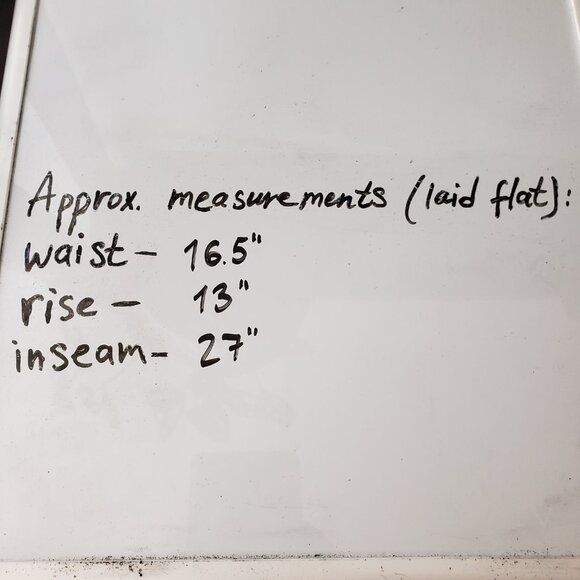 Approx. measurements (laid flat):
waist- 16.5"
rise - 13"
inseam- 27"